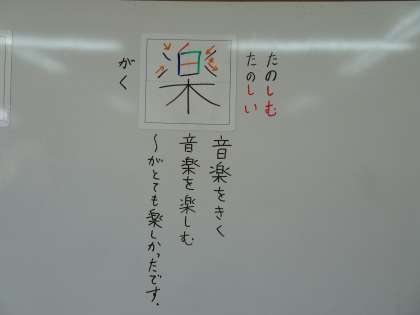 たのしむ
たのしい
楽
がく
音楽をきく
音楽を楽しむ
～がとても楽しかったです.